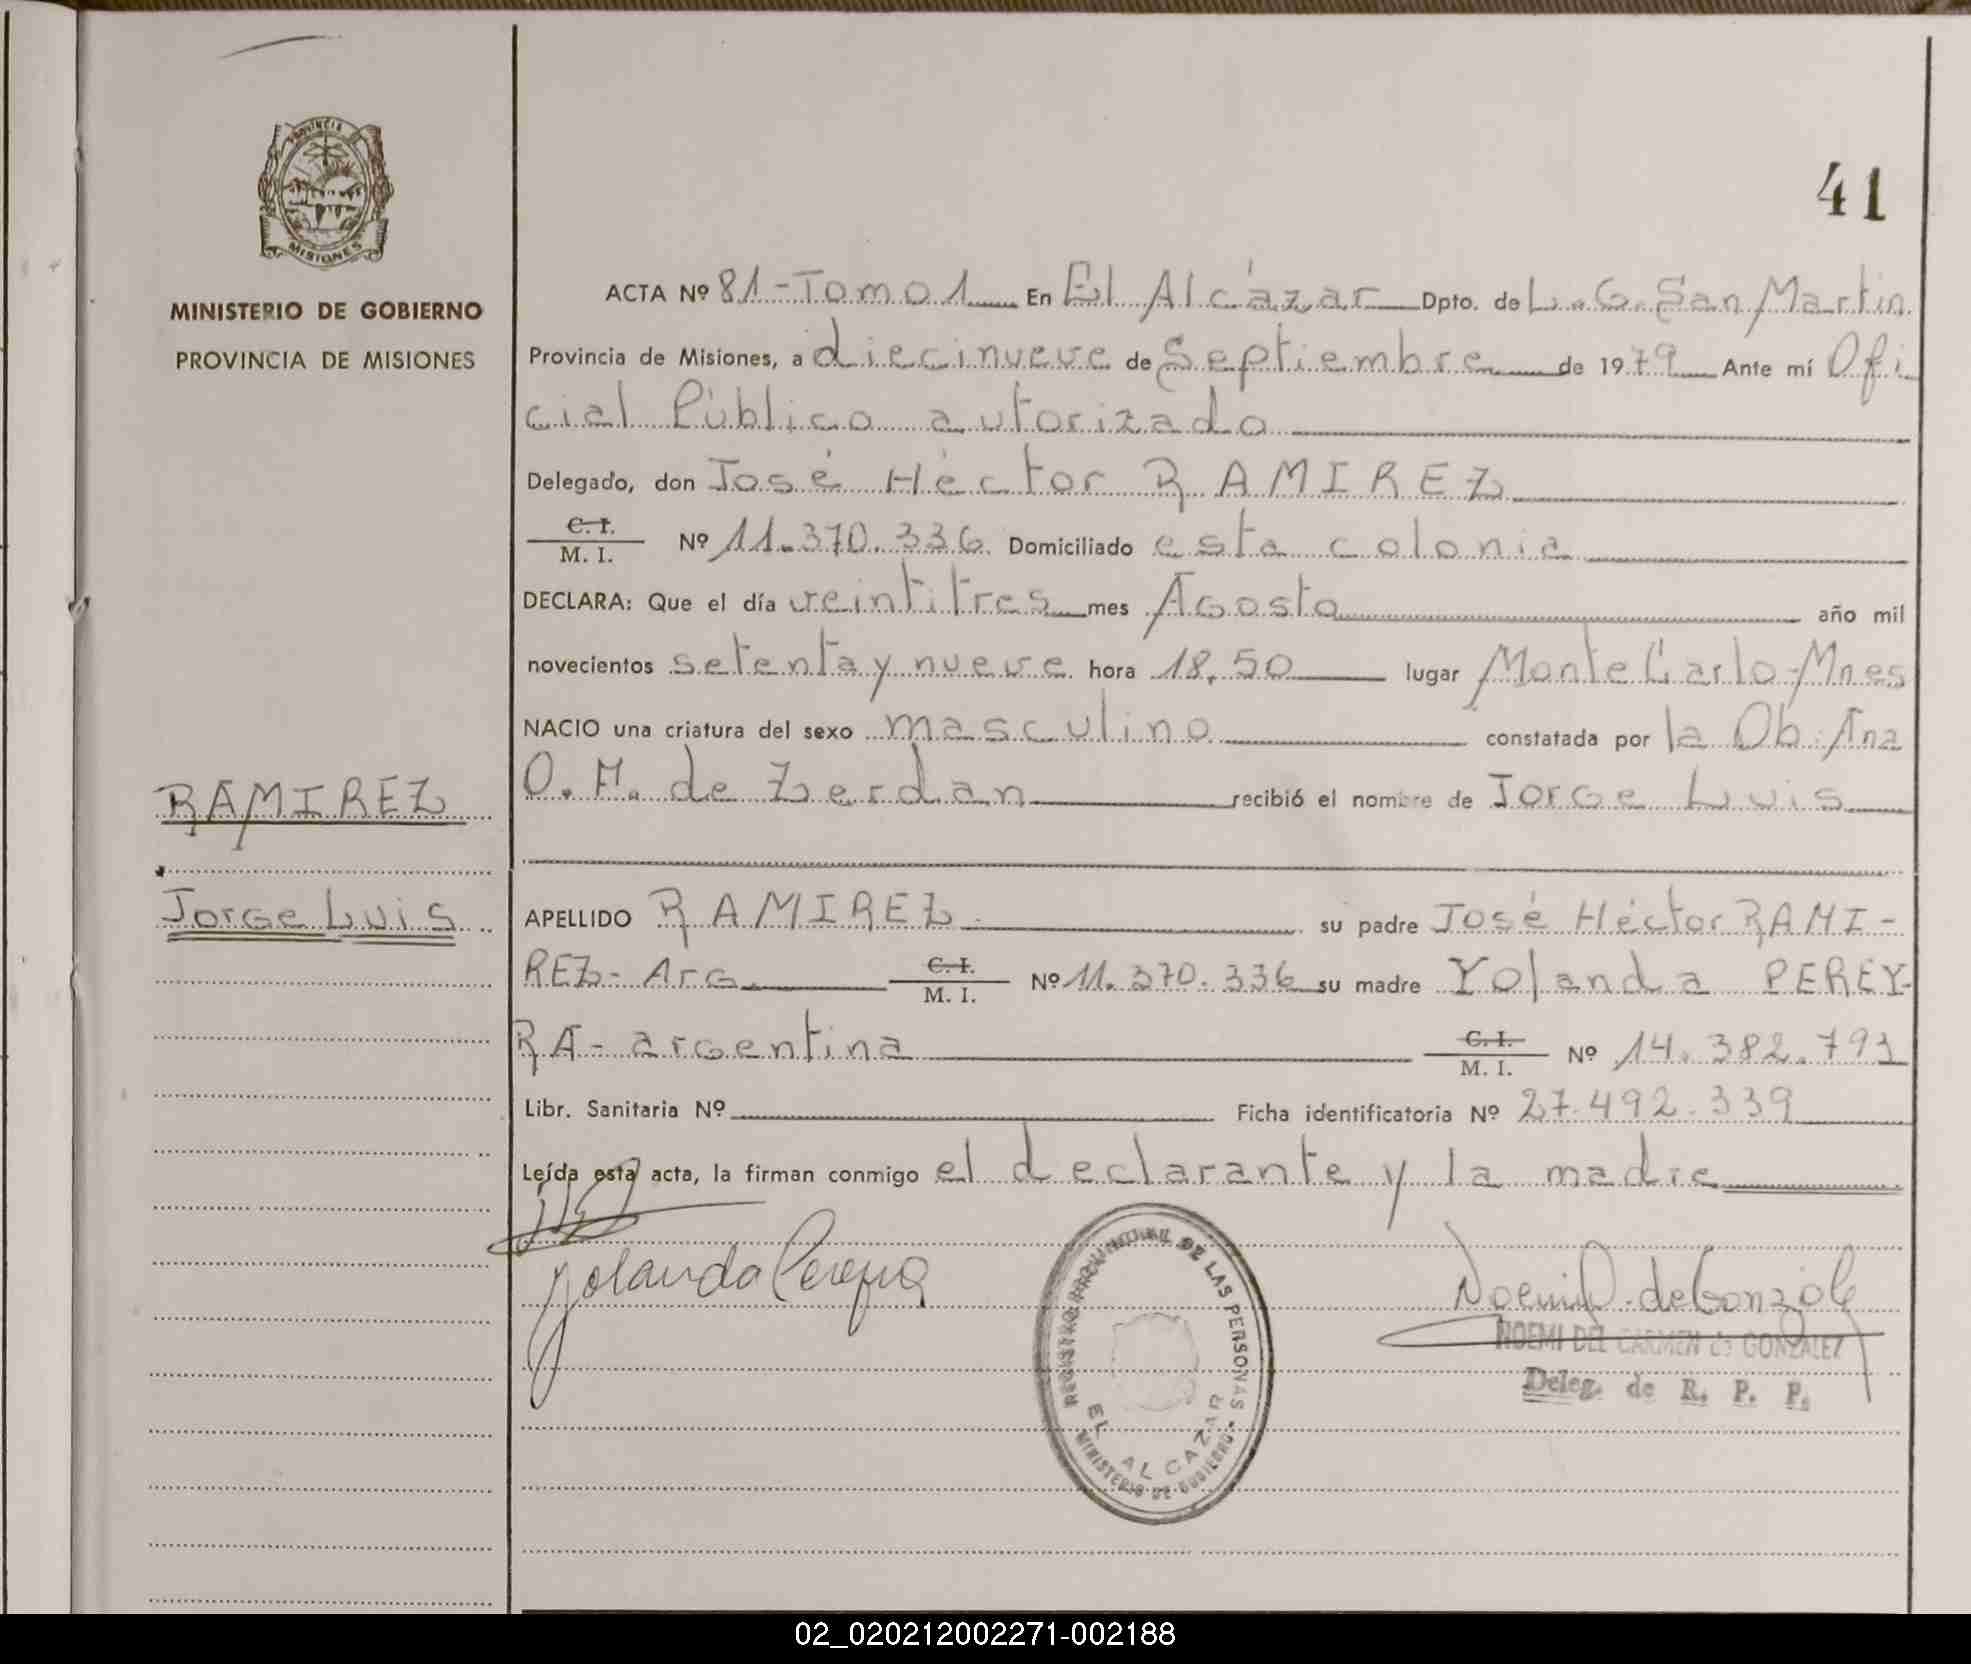 PROVINCIA
MISIONES
MINISTERIO DE GOBIERNO
PROVINCIA DE MISIONES
RAMIREZ
Jorge Luis
41
ACTA Nº 81-Tomo 1 En El Alcázar Dpto. de L.G. San Martin
Provincia de Misiones, a diecinueve de Septiembre de 1979 Ante mí Ofi
cial Público autorizado
Delegado, don José Héctor RAMIREZ
C. I.
M. I. Nº 11.370.336 Domiciliado esta colonia
DECLARA: Que el día veintitres mes Agosto año mil
novecientos setenta y nueve hora 18,50 lugar Monte Carlo-Mnes
NACIO una criatura del sexo masculino constatada por la Ob. Ana
O. M. de Zerdan recibió el nombre de Jorge Luis
APELLIDO RAMIREZ su padre José Héctor RAMI-
REZ- Arg. C. I. M. I. Nº 11.370.336 su madre Yolanda PEREY-
RA- argentina C. I. M. I. Nº 14.382.793
Libr. Sanitaria Nº Ficha identificatoria Nº 27.492.339
Leída esta acta, la firman conmigo el declarante y la madre
Yolanda Pereyra
REGISTRO PROVINCIAL DE LAS PERSONAS
EL ALCAZAR
MINISTERIO DE GOBIERNO
Noemi D. de Gonzalez
NOEMI DEL CARMEN de GONZALEZ
Deleg. de R. P. P.
02_020212002271-002188